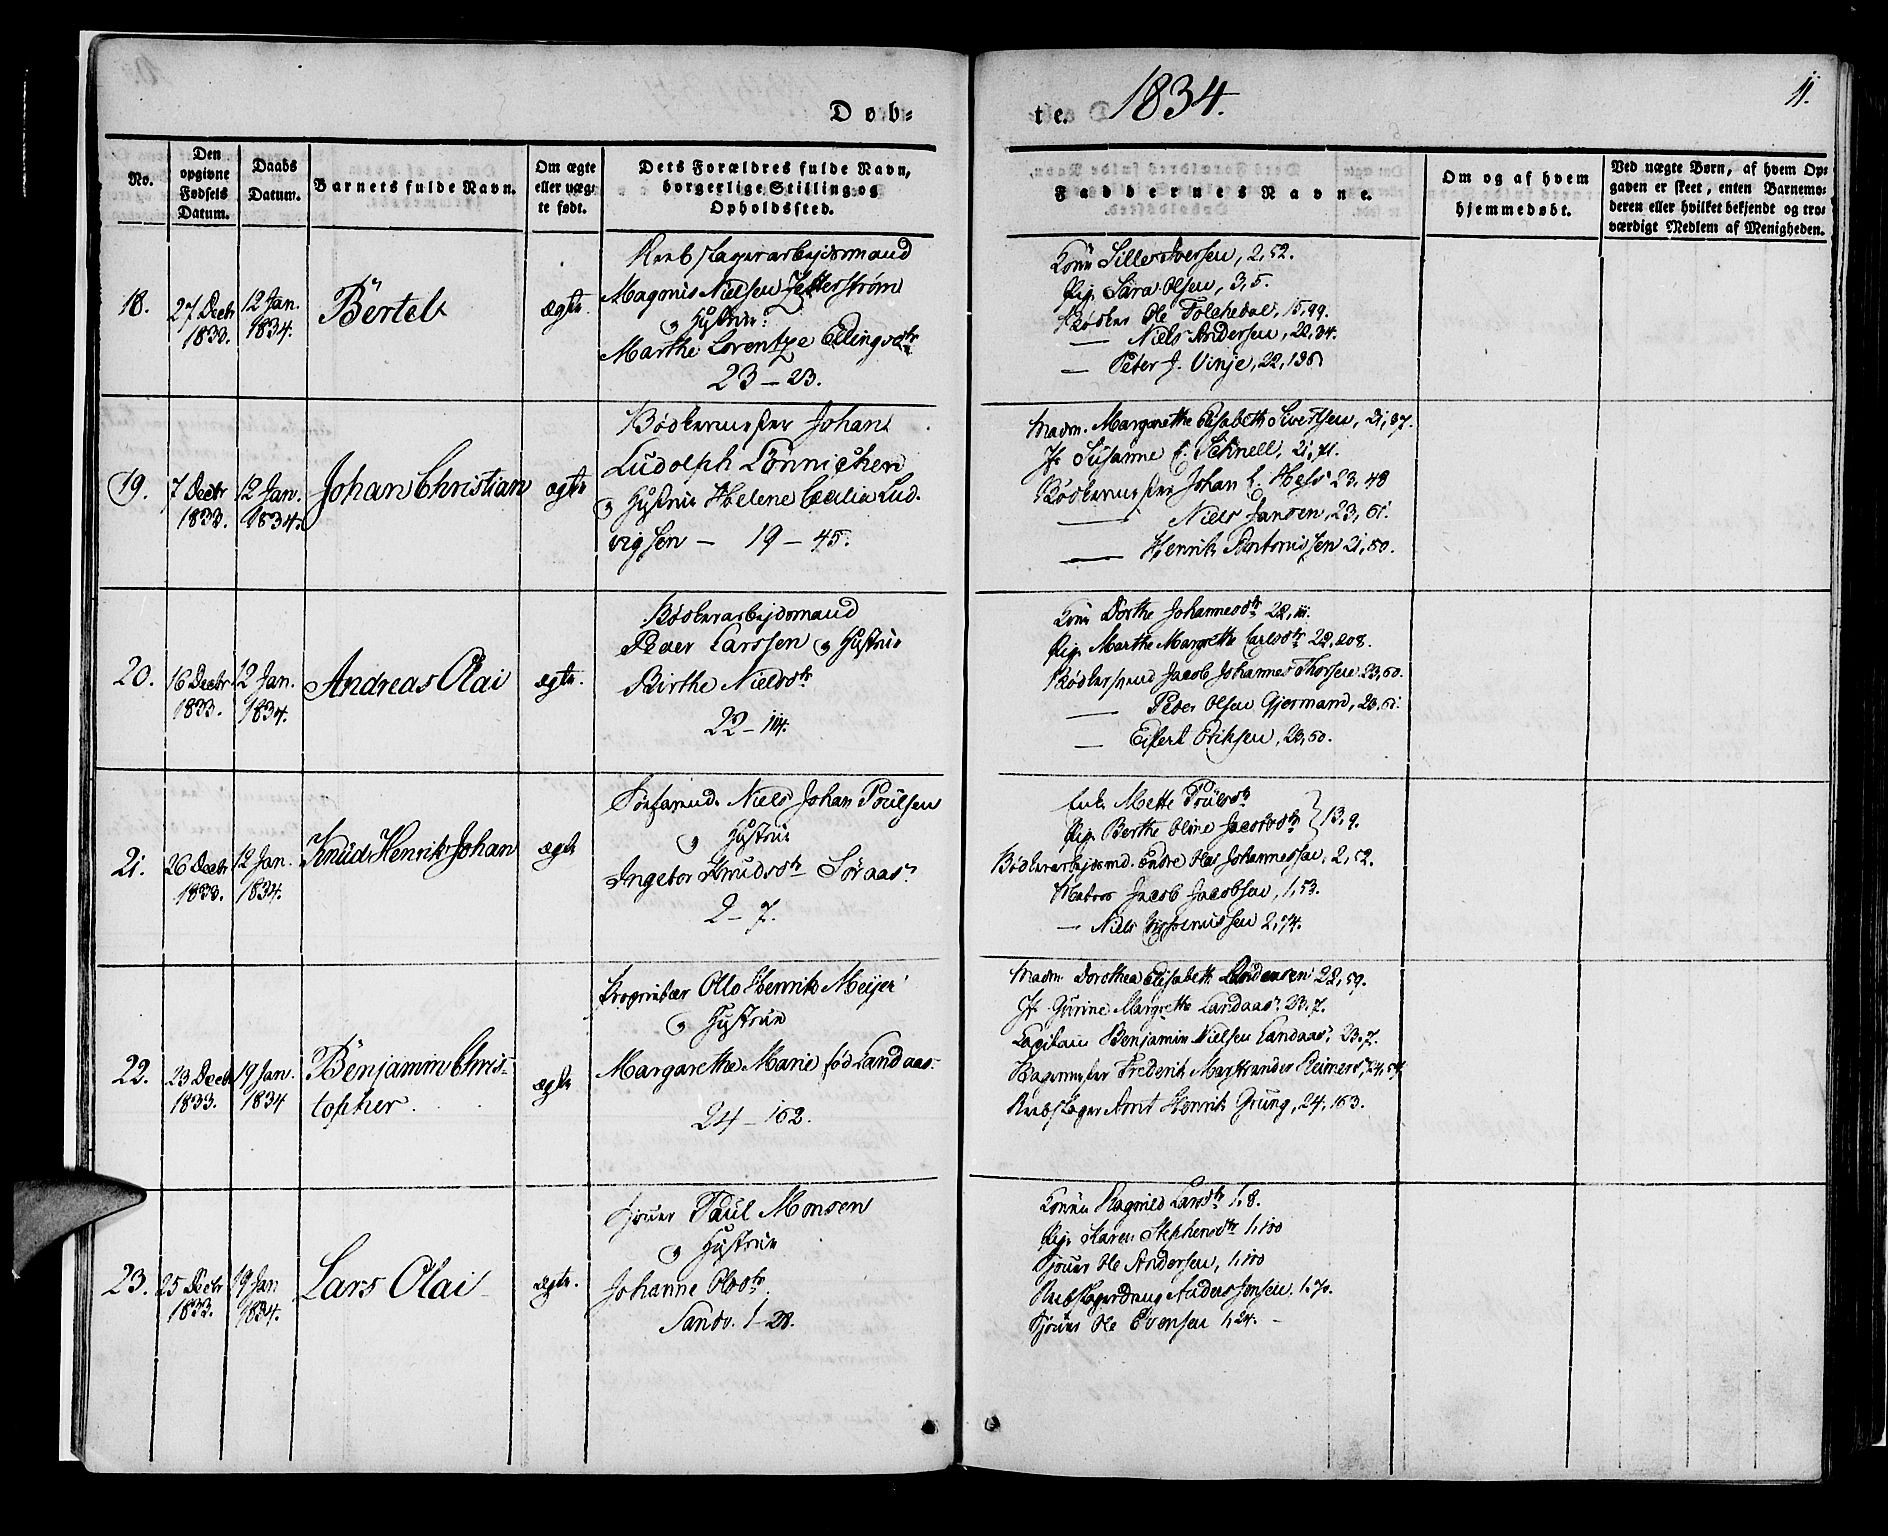 Døb=
te. 1834.
11.
No.
Den opgivne Fødsels Datum.
Daabs Datum.
Barnets fulde Navn.
Om ægte eller uæg= te født.
Dets Forældres fulde Navn, borgerlige Stilling og Opholdssted.
Faddernes Navne.
Om og af hvem hjemmedøbt.
Ved uægte Børn, af hvem Op= gaven er skeet, enten Barnemo= deren eller hvilket bekjendt og tro= værdigt Medlem af Menigheden.
18.
27 Decbr 1833.
12 Jan. 1834.
Bertel
ægte.
Reebslagerarbejdsmand
Magonis Nielsen Zetterstrøm
og Hustrue
Marthe Lorentze Ellingsdtr
23 – 23.
Kone Sille Iversen, 2,52.
Pige Sara Olsen, 3,5.
Bødker Ole Folkedal, 15,99.
— Niels Andersen, 22,34.
— Peter J. Vinje, 22,136
19.
7 Decbr 1833.
12 Jan. 1834.
Johan Christian
ægte
Bødkermester Johan
Ludolph Lønnichen
og Hustrue Helene Cecilia Lud-
vigsen – 19 – 45.
Madm. Margarethe Elisabeth Sivertsen, 21,37.
Jf Susanne C. Schnell, 21,71.
Bødkermester Johan C. Hess 23,48
— Niels Jansen, 23,61.
— Henrik Antonissen 21,50.
20.
16 Decbr 1833.
12 Jan. 1834.
Andreas Olai
ægte.
Bødkerarbejdsmand
Peder Larssen og Hustrue
Birthe Nielsdtr
22 – 114.
Kone Dorthe Johannesdtr 22,111.
Pige Marthe Margrethe Carlsdtr 22,208.
Bødkersvend Jacob Johannes Thorsen 23,60.
— Peder Olsen Gjermand, 23,61.
— Eilert Eriksen, 23,50.
21.
26 Decbr 1833.
12 Jan. 1834.
Knud Henrik Johan
ægte
Niels Johan Poulsen
og Hustrue
Ingebor Knudsdtr Søraas
2 – 7.
Enke Mette Poulsdtr
Pige Berthe Oline Jacobsdtr } 13,9.
Bødkerarbejdsmd. Endre Olai Johannessen, 2,52.
Matros Jacob Jacobsen, 1,53.
— Niels 2,74.
22.
23 Decbr 1833.
19 Jan. 1834
Benjamin Chris-
topher.
ægte
Proprietær Otto Henrik Meijer
og Hustrue
Margarethe Marie fød Landaas
24 – 162.
Madm Dorothea Elisabeth 22,59.
Jf Gurine Margrethe Landaas 23,7.
Capitain Benjamin Nielsen Landaas 23,7.
Bagermester Frederik Marstrander Reimers 24,54
Reebslager Arnt Henrik Grung, 24,163.
23.
25 Decbr 1833.
19 Jan 1834.
Lars Olai
ægte.
Sjouer Paul Monsen
og Hustrue
Johanne Olsdtr
Sandv. 1–28.
Kone Ragnild Larsdtr 1,8.
Pige Karen Stephensdtr 1,100
Sjouer Ole Andersen, 1,100
Reebslagerdreng Anders Jonsen, 1,70.
Sjouer Ole Evensen 1,24.